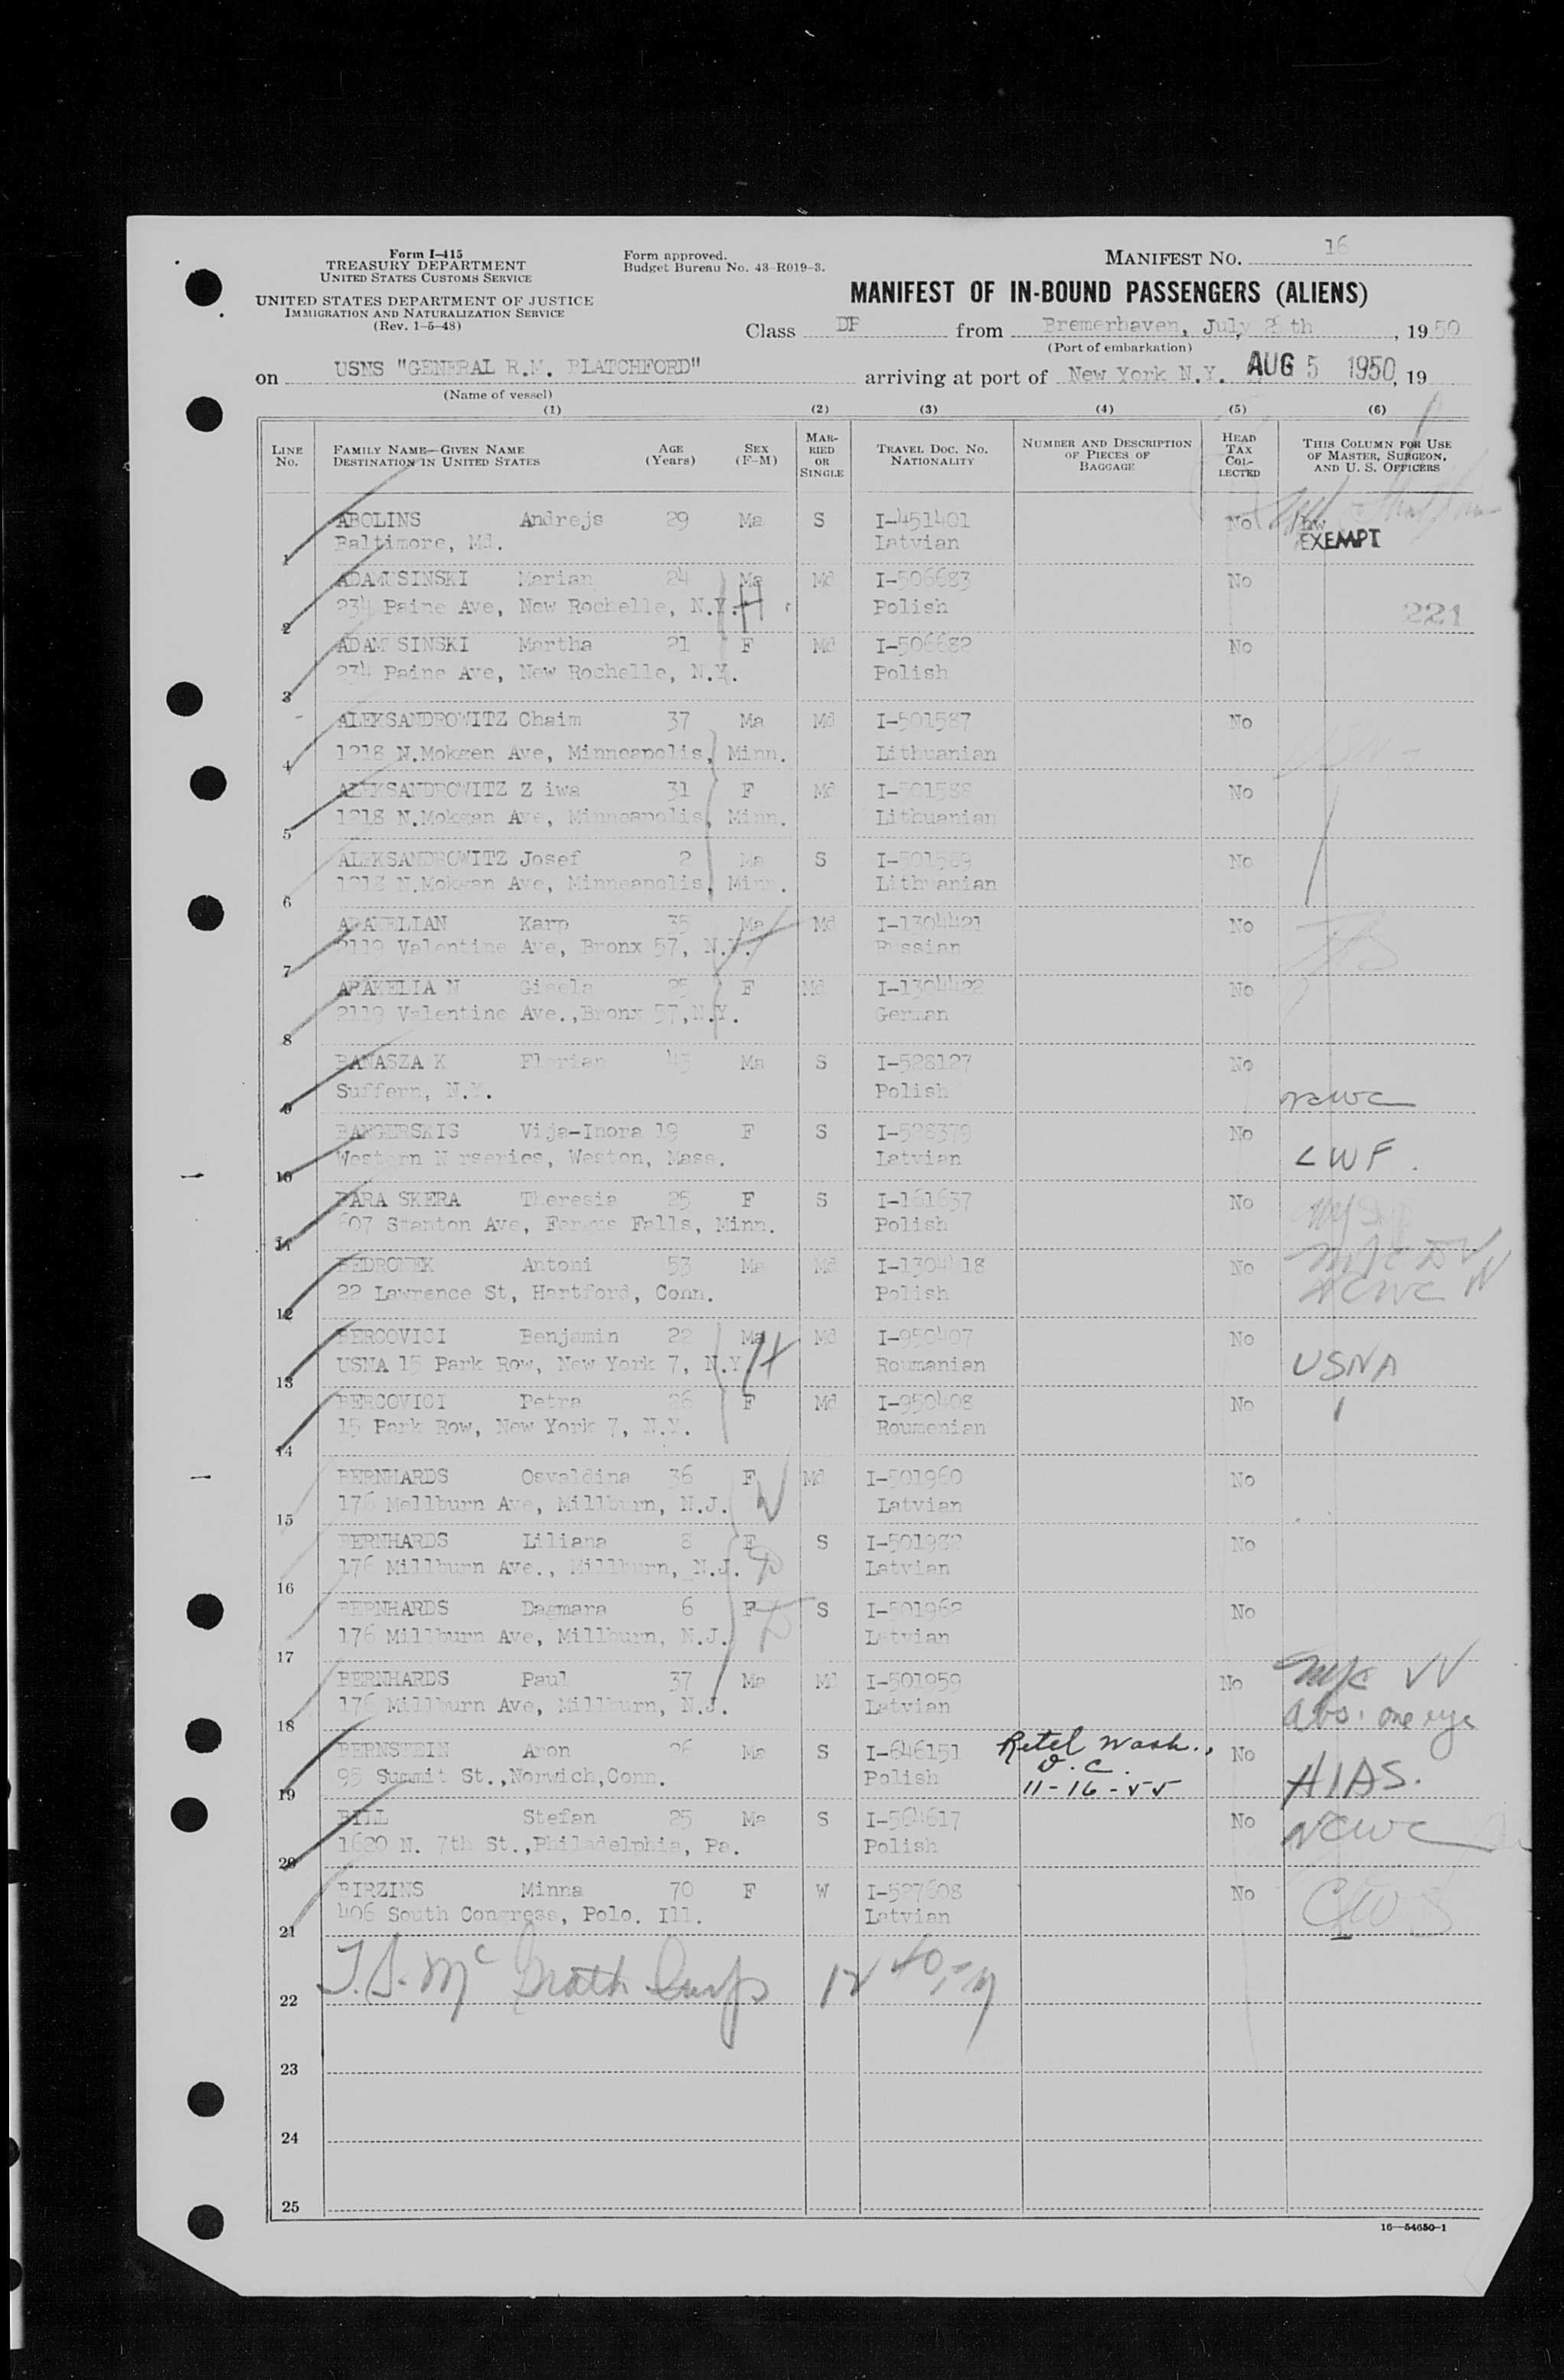 Form I-415
TREASURY DEPARTMENT
UNITED STATES CUSTOMS SERVICE
UNITED STATES DEPARTMENT OF JUSTICE
IMMIGRATION AND NATURALIZATION SERVICE
(Rev. 1-5-48)
Form approved.
Budget Bureau No. 43-R019-3.
MANIFEST NO. 16
MANIFEST OF IN-BOUND PASSENGERS (ALIENS)
Class DP from Bremerhaven, July th, 1950
(Port of embarkation)
on USNS "GENERAL R.M. BLATCHFORD" arriving at port of New York N.Y. AUG 5 1950, 19
(Name of vessel)
(1) (2) (3) (4) (5) (6)
LINE No. FAMILY NAME—GIVEN NAME DESTINATION IN UNITED STATES AGE (Years) SEX (F-M) MARRIED OR SINGLE TRAVEL DOC. NO. NATIONALITY NUMBER AND DESCRIPTION OF PIECES OF BAGGAGE HEAD TAX COLLECTED THIS COLUMN FOR USE OF MASTER, SURGEON, AND U. S. OFFICERS
ABOLINS Andrejs 29 Ma S I-451401 No
1 Baltimore, Md. Latvian EXEMPT
ADAMUSINSKI Marian 24 Ma Md I-506683 No
2 234 Paine Ave, New Rochelle, N.Y. H Polish 221
ADAM SINSKI Martha 21 F Md I-506682 No
3 234 Paine Ave, New Rochelle, N.Y. Polish
ALEKSANDROWITZ Chaim 37 Ma Md I-501587 No
4 1218 N.Mokgen Ave, Minneapolis, Minn. Lithuanian
ALEKSANDROWITZ Z iwa 31 F Md I-501588 No
5 1218 N.Mokgan Ave, Minneapolis, Minn. Lithuanian
ALEKSANDROWITZ Josef 2 Ma S I-501589 No
6 1218 N.Mokgan Ave, Minneapolis, Minn. Lithuanian
ARAKELIAN Karp 35 Ma Md I-1304421 No
7 2119 Valentine Ave, Bronx 57, N.Y. Russian
ARAKELIA N Gisela 25 F Md I-1304422 No
8 2119 Valentine Ave.,Bronx 57,N.Y. German
BANASZA K Florian 43 Ma S I-528127 No
9 Suffern, N.Y. Polish NCWC
BANGERSKIS Vija-Inora 19 F S I-528379 No
10 Western N rseries, Weston, Mass. Latvian LWF.
BARA SKERA Theresia 25 F S I-161637 No
11 607 Stanton Ave, Fergus Falls, Minn. Polish
BEDRONEK Antoni 53 Ma Md I-1304418 No
12 22 Lawrence St, Hartford, Conn. Polish NCWC
BERCOVICI Benjamin 22 Ma Md I-950407 No
13 USNA 15 Park Row, New York 7, N.Y. H Roumanian USNA
BERCOVICI Petra 26 F Md I-950408 No
14 15 Park Row, New York 7, N.Y. Roumanian
BERNHARDS Osvaldina 36 F Md I-501960 No
15 176 Mellburn Ave, Millburn, N.J. Latvian
BERNHARDS Liliana 8 F S I-501982 No
16 176 Millburn Ave., Millburn, N.J. Latvian
BERNHARDS Dagmara 6 F S I-501962 No
17 176 Millburn Ave, Millburn, N.J. Latvian
BERNHARDS Paul 37 Ma Md I-501959 No
18 176 Millburn Ave, Millburn, N.J. Latvian abs. one eye
BERNSTEIN Aron 26 Ma S I-646151 Retel Wash., D.C. 11-16-55 No
19 95 Summit St.,Norwich,Conn. Polish HIAS.
BILL Stefan 25 Ma S I-564617 No
20 1620 N. 7th St.,Philadelphia, Pa. Polish NCWC
BIRZINS Minna 70 F W I-527608 No
21 406 South Congress, Polo. Ill. Latvian CWS
22 T.S. McGrath
23
24
25
16—54650-1